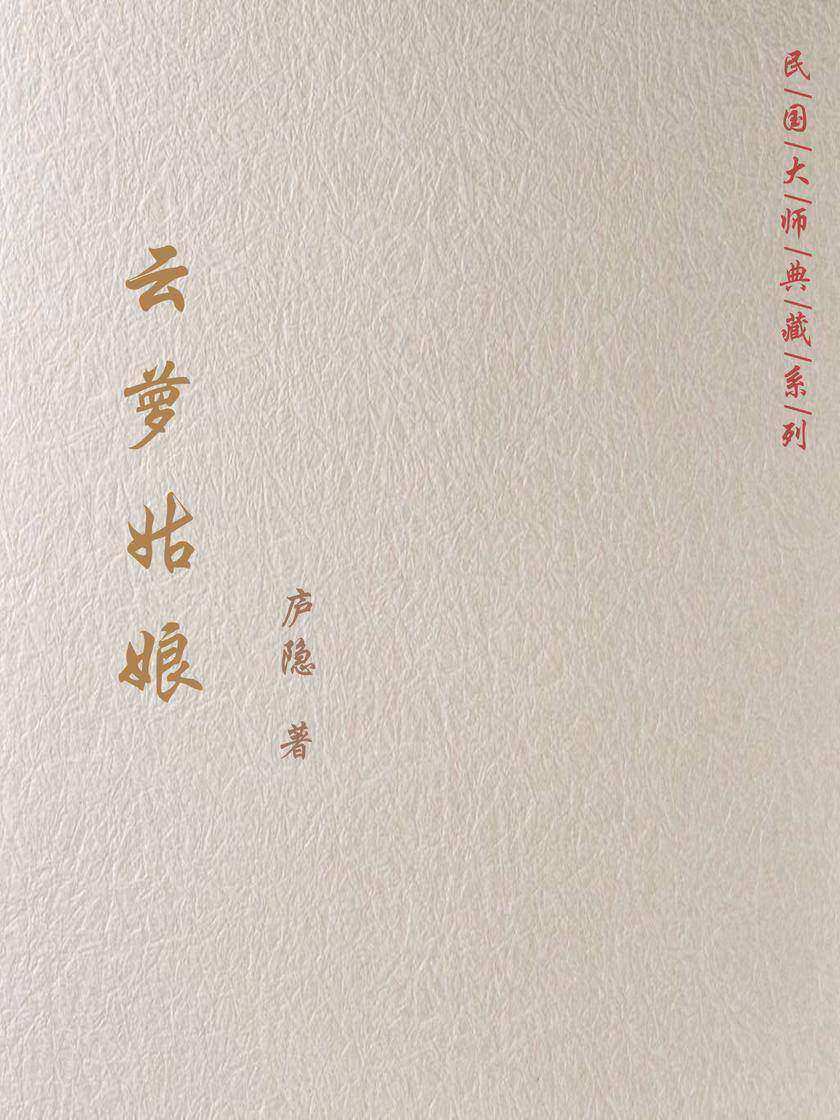 民|国|大|师|典|藏|系|列
云萝姑娘
庐隐 著